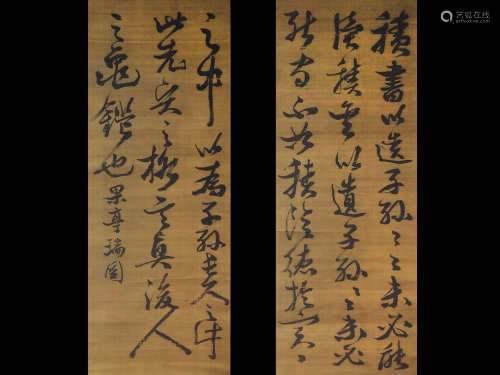 積書以遺子孫々々未必能
讀積金以遺子孫々々未必
能守不如積陰德於冥々
之中以為子孫長久之計
此先賢之格言真後人
之龜鑑也 果亭瑞圖
艺狐在线
artfoxlive.com